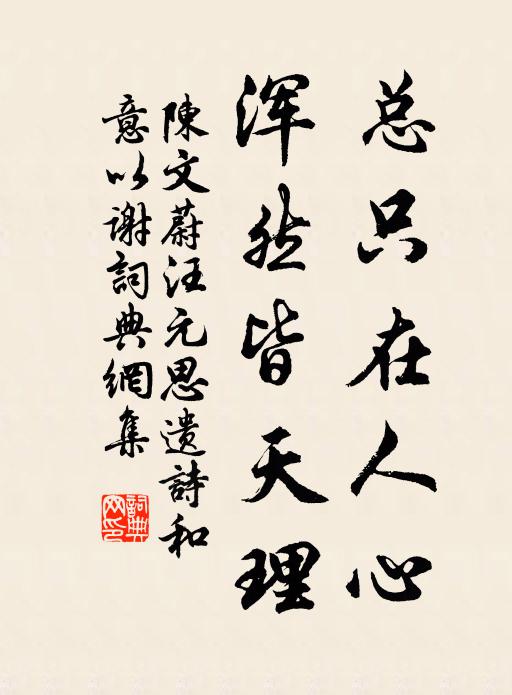 总只在人心
浑然皆天理
陳文蔚汪元思遗詩和
意以谢詞典網集
詞典
网印